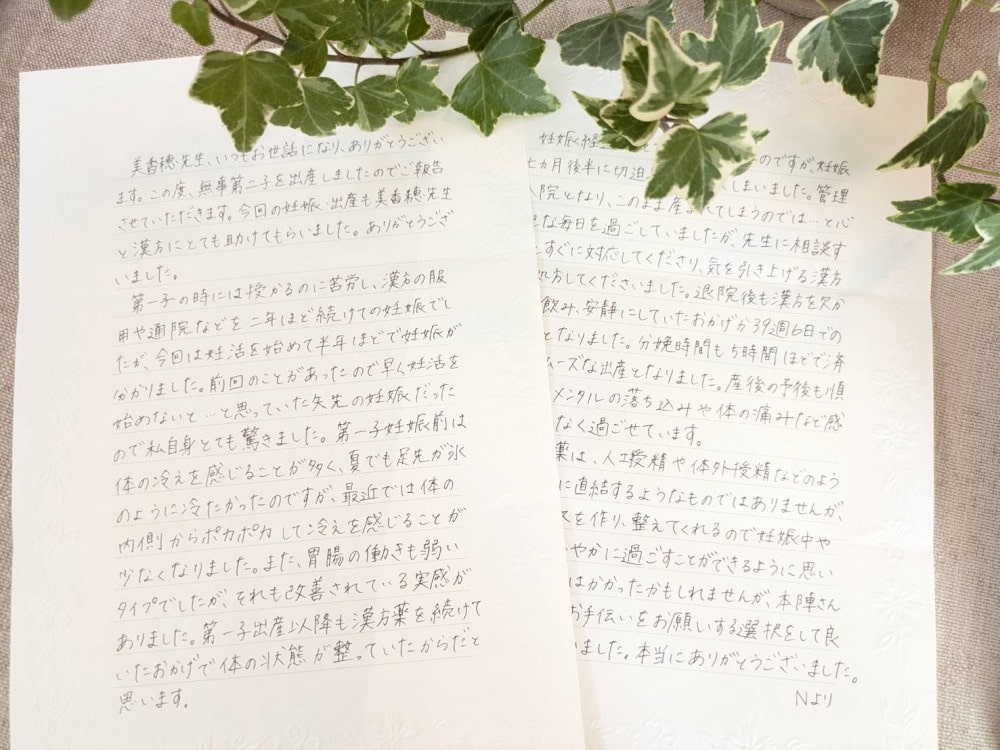 美香穂先生、いつもお世話になり、ありがとうござい
ます。この度、無事第二子を出産しましたのでご報告
させていただきます。今回の妊娠・出産も美香穂先生
と漢方にとても助けてもらいました。ありがとうござ
いました。
第一子の時には授かるのに苦労し、漢方の服
用や通院などを二年ほど続けての妊娠でし
たが、今回は妊活を始めて半年ほどで妊娠が
分かりました。前回のことがあったので早く妊活を
始めないと…と思っていた矢先の妊娠だった
ので私自身とても驚きました。第一子妊娠前は
体の冷えを感じることが多く、夏でも足先が氷
のように冷たかったのですが、最近では体の
内側からポカポカして冷えを感じることが
少なくなりました。また、胃腸の働きも弱い
タイプでしたが、それも改善されている実感が
ありました。第一子出産以降も漢方薬を続けて
いたおかげで体の状態が整っていたからだと
思います。
妊娠経 のですが、妊娠
七カ月後半に切迫 しまいました。管理
院となり、このまま産まれてしまうのでは…と心
な毎日を過ごしていましたが、先生に相談す
すぐに対応してくださり、気を引き上げる漢方
処方してくださいました。退院後も漢方を欠か
飲み、安静にしていたおかげか39週6日での
となりました。分娩時間も5時間ほどで済
ムーズな出産となりました。産後の予後も順
メンタルの落ち込みや体の痛みなど感
なく過ごせています。
薬は、人工授精や体外授精などのよう
に直結するようなものではありませんが、
を作り、整えてくれるので妊娠中や
やかに過ごすことができるように思い
はかかったかもしれませんが、本陣さん
お手伝いをお願いする選択をして良
いました。本当にありがとうございました。
Nより